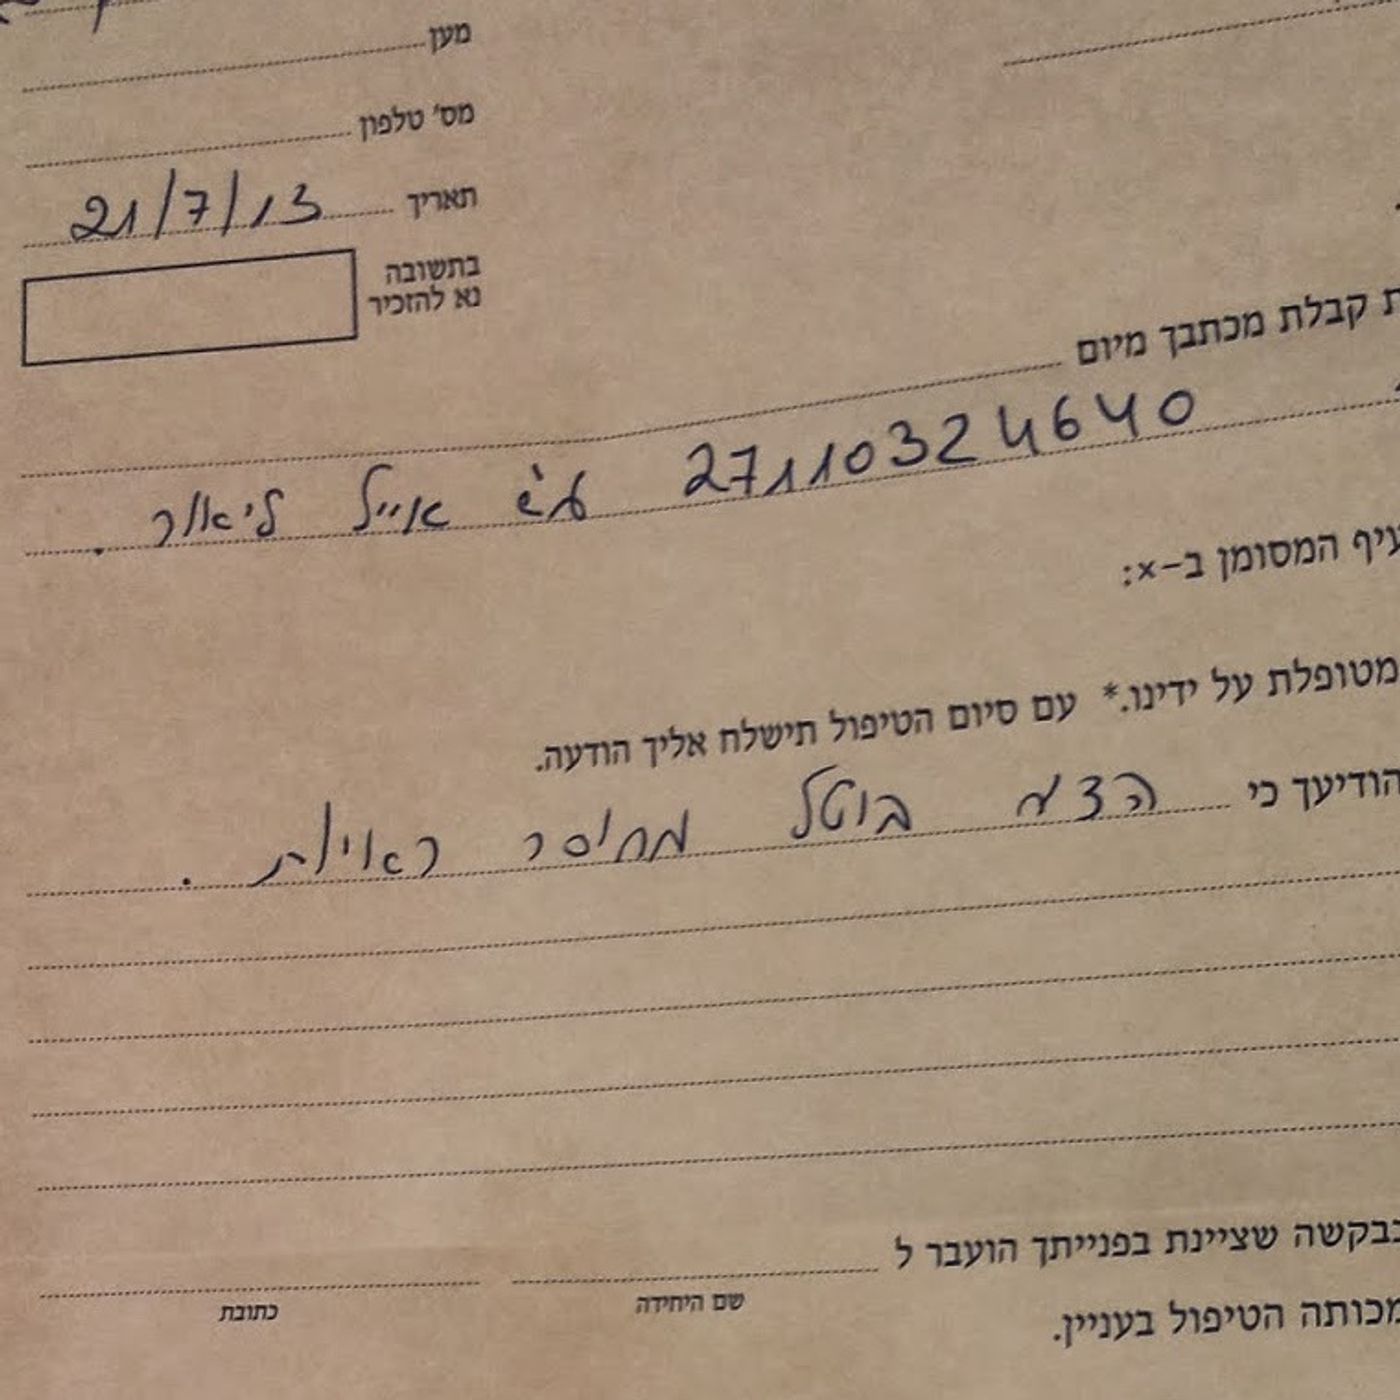 מען
מס' טלפון
תאריך 21/7/13
בתשובה
נא להזכיר
קבלת מכתבך מיום
27110324640 ע"ש אייל ליאור.
המסומן ב-x:
מטופלת על ידינו.* עם סיום הטיפול תישלח אליך הודעה.
הודיעך כי בוטל מחוסר ראיות.
בבקשה שציינת בפנייתך הועבר ל
שם היחידה כתובת
הטיפול בעניין.